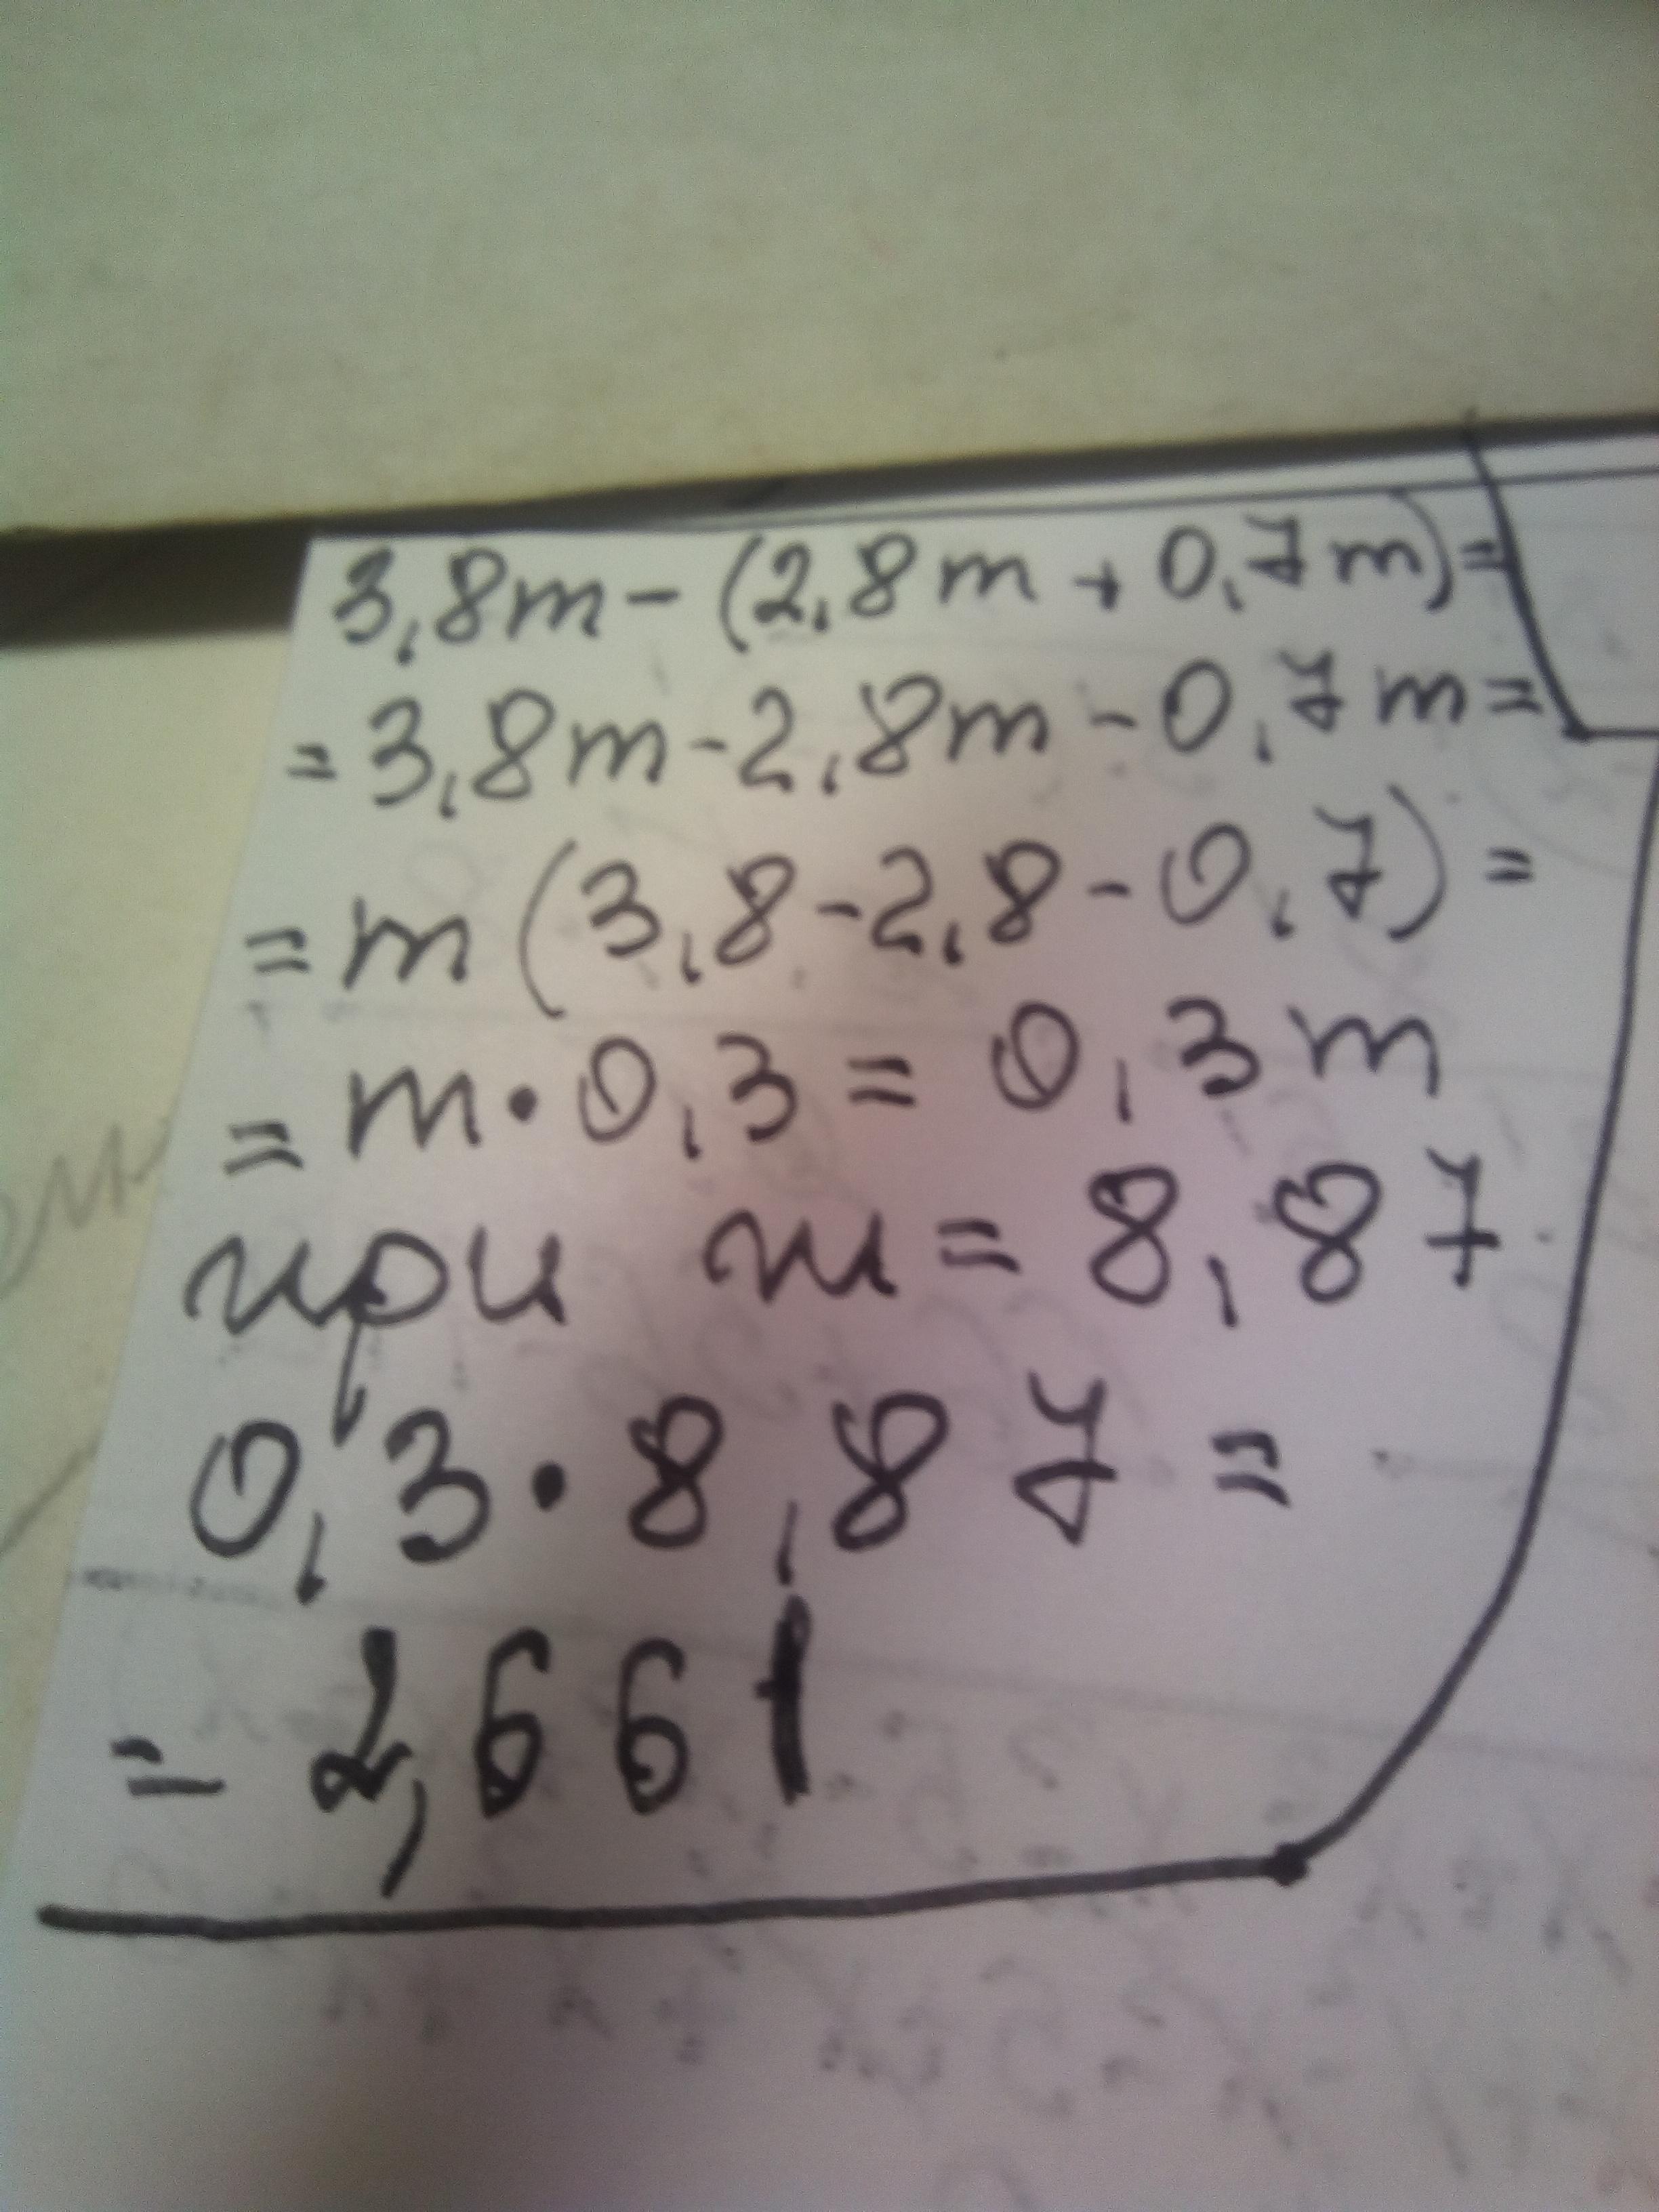 3,8m-(2,8m+0,7m)=
=3,8m-2,8m-0,7m=
=m(3,8-2,8-0,7)=
=m·0,3=0,3m
при m=8,87
0,3·8,87=
=2,661